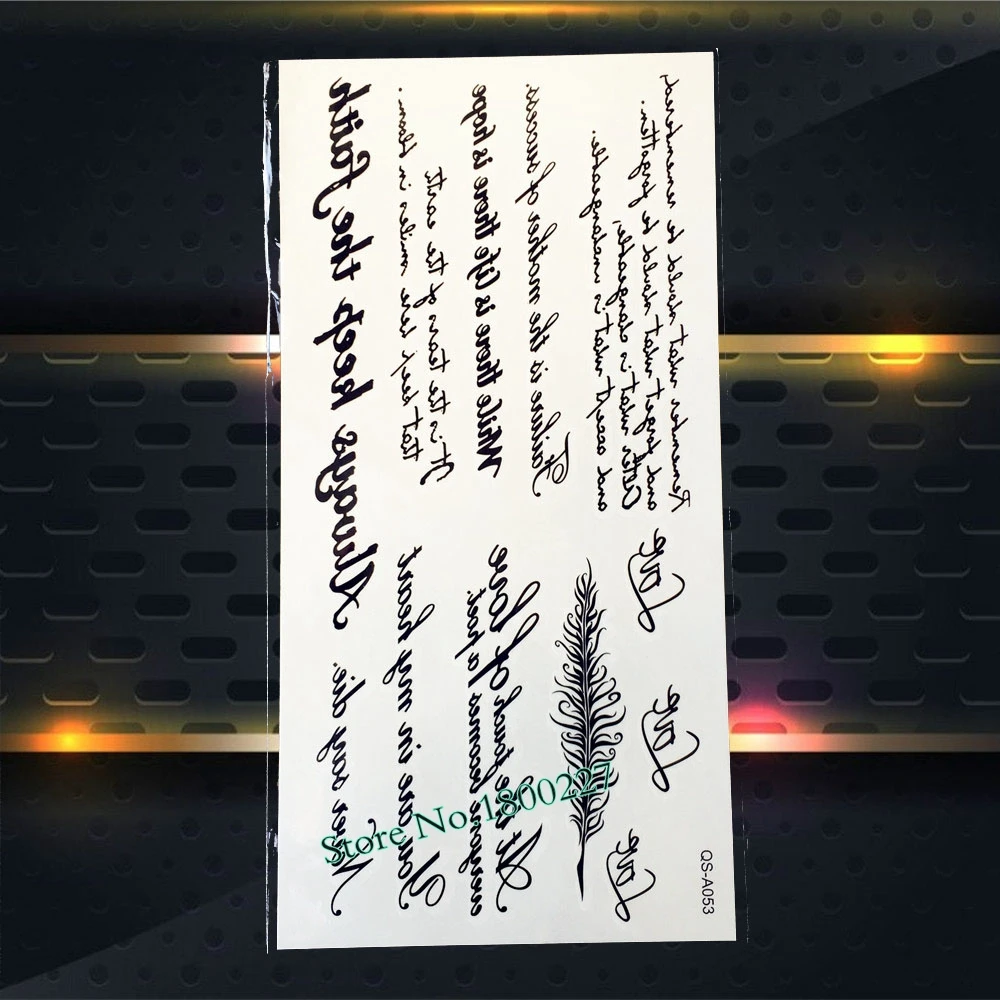 Remember what should be remembered,
and forget what should be forgotten.
Alter what is changeable,
and accept what is unchangeable.
Failure is the mother of success
While there is life there is hope
It is the tears of the earth
that keep her smiles in bloom.
Always keep the Faith
Love
Love
Love
At the touch of love
everyone becomes a poet.
You are in my heart
Never say die.
QS-A053
Store No:1800227